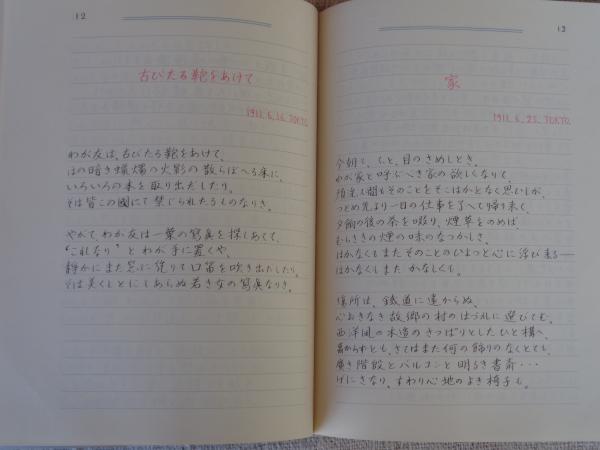 12
古びたる鞄をあけて
1911.6.16.TOKYO.
わが友は、古びたる鞄をあけて、
ほの暗き蝋燭の火影の散らぼへる床に、
いろいろの本を取り出だしたり。
そは皆この國にて禁じられたるものなりき。
やがて、わが友は一葉の寫眞を探しあてて、
“これなり”とわが手に置くや、
静かにまた窓に凭りて口笛を吹き出だしたり。
そは美くしとにもあらぬ若き女の寫眞なりき。
13
家
1911.6.25.TOKYO.
今朝も、ふと、目のさめしとき、
わが家と呼ぶべき家の欲しくなりて、
顔洗ふ間もそのことをそこはかとなく思ひしが、
つとめ先より一日の仕事を了へて帰り来て、
夕餉の後の茶を啜り、煙草をのめば、
むらさきの煙の味のなつかしさ、
はかなくもまたそのことのひょっと心に浮び来る―
はかなくもまた かなしくも。
場所は、鉄道に遠からぬ、
心おきなき故郷の村のはづれに選びてむ。
西洋風の木造のさっぱりとしたひと構へ、
高からずとも、さてはまた何の飾りのなくとても、
廣き階段とバルコンと明るき書斎・・・
げにさなり、すわり心地のよき椅子も。